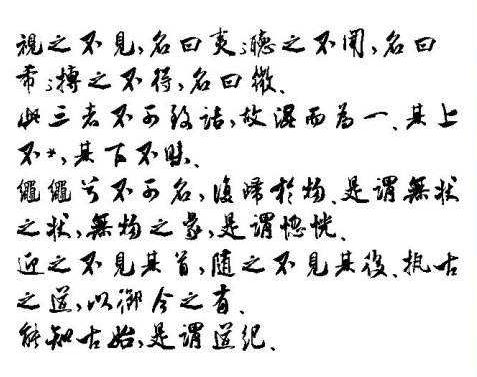 視之不見,名曰夷;聽之不聞,名曰
希;搏之不得,名曰微、
此三者不可致詰,故混而為一、其上
不*,其下不昧、
繩繩兮不可名,復歸於物、是謂無狀
之狀,無物之象,是謂惚恍、
迎之不見其首,隨之不見其後、执古
之道,以御今之有、
能知古始,是謂道紀、